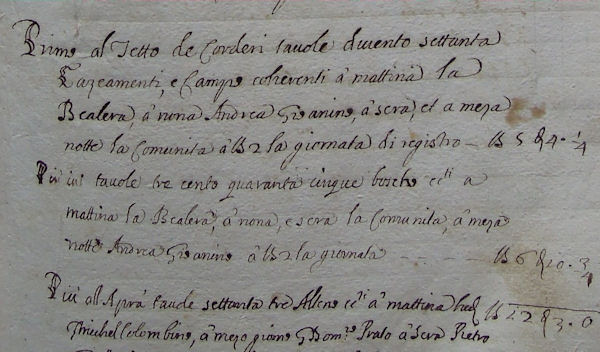 Primo al Tetto de Corderi tavole duvento settanta
Gazeamenti, e Campo coherenti à mattina la
Bealera, à nona Andrea Giranino, à sera, et a meza
notte la Comunita à lb 2 la giornata di registro — lb 5 4. 1/4
Più ivi tavole tre cento quaranta cinque boscho a
mattina la Bealera, à nona, e sera la Comunita, à meza
notte Andrea Giranino à lb 2 la giornata lb 6 20. 3/4
Più all tavole settanta tre à mattina
Michel Colombino, à mezo giorno Prato à sera Pietro